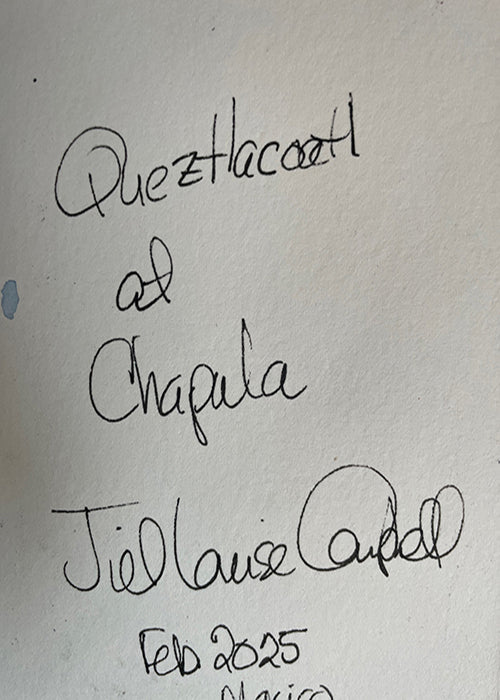 Queztlacoatl
at
Chapala
Jill Louise Campbell
Feb 2025
Mexico